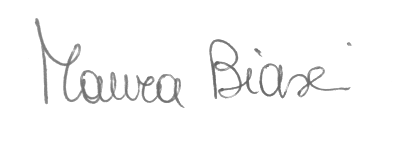 Maura Biasi